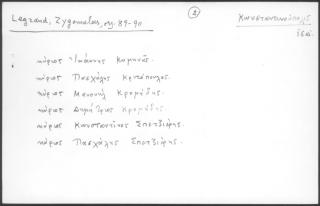 Legrand, Zygomalas, σσ. 89-90
②
Κωνσταντινούπολις
ἱερ.
κύριος Ἰωάννης Κομηνᾶς.
κύριος Πασχάλης Κριτόπουλος.
κύριος Μανουὴλ Κρομύδης.
κύριος Δημήτριος Κρομύδης.
κύριος Κωνσταντῖνος Σπετζιέρης.
κύριος Πασχάλης Σπετζιέρης.